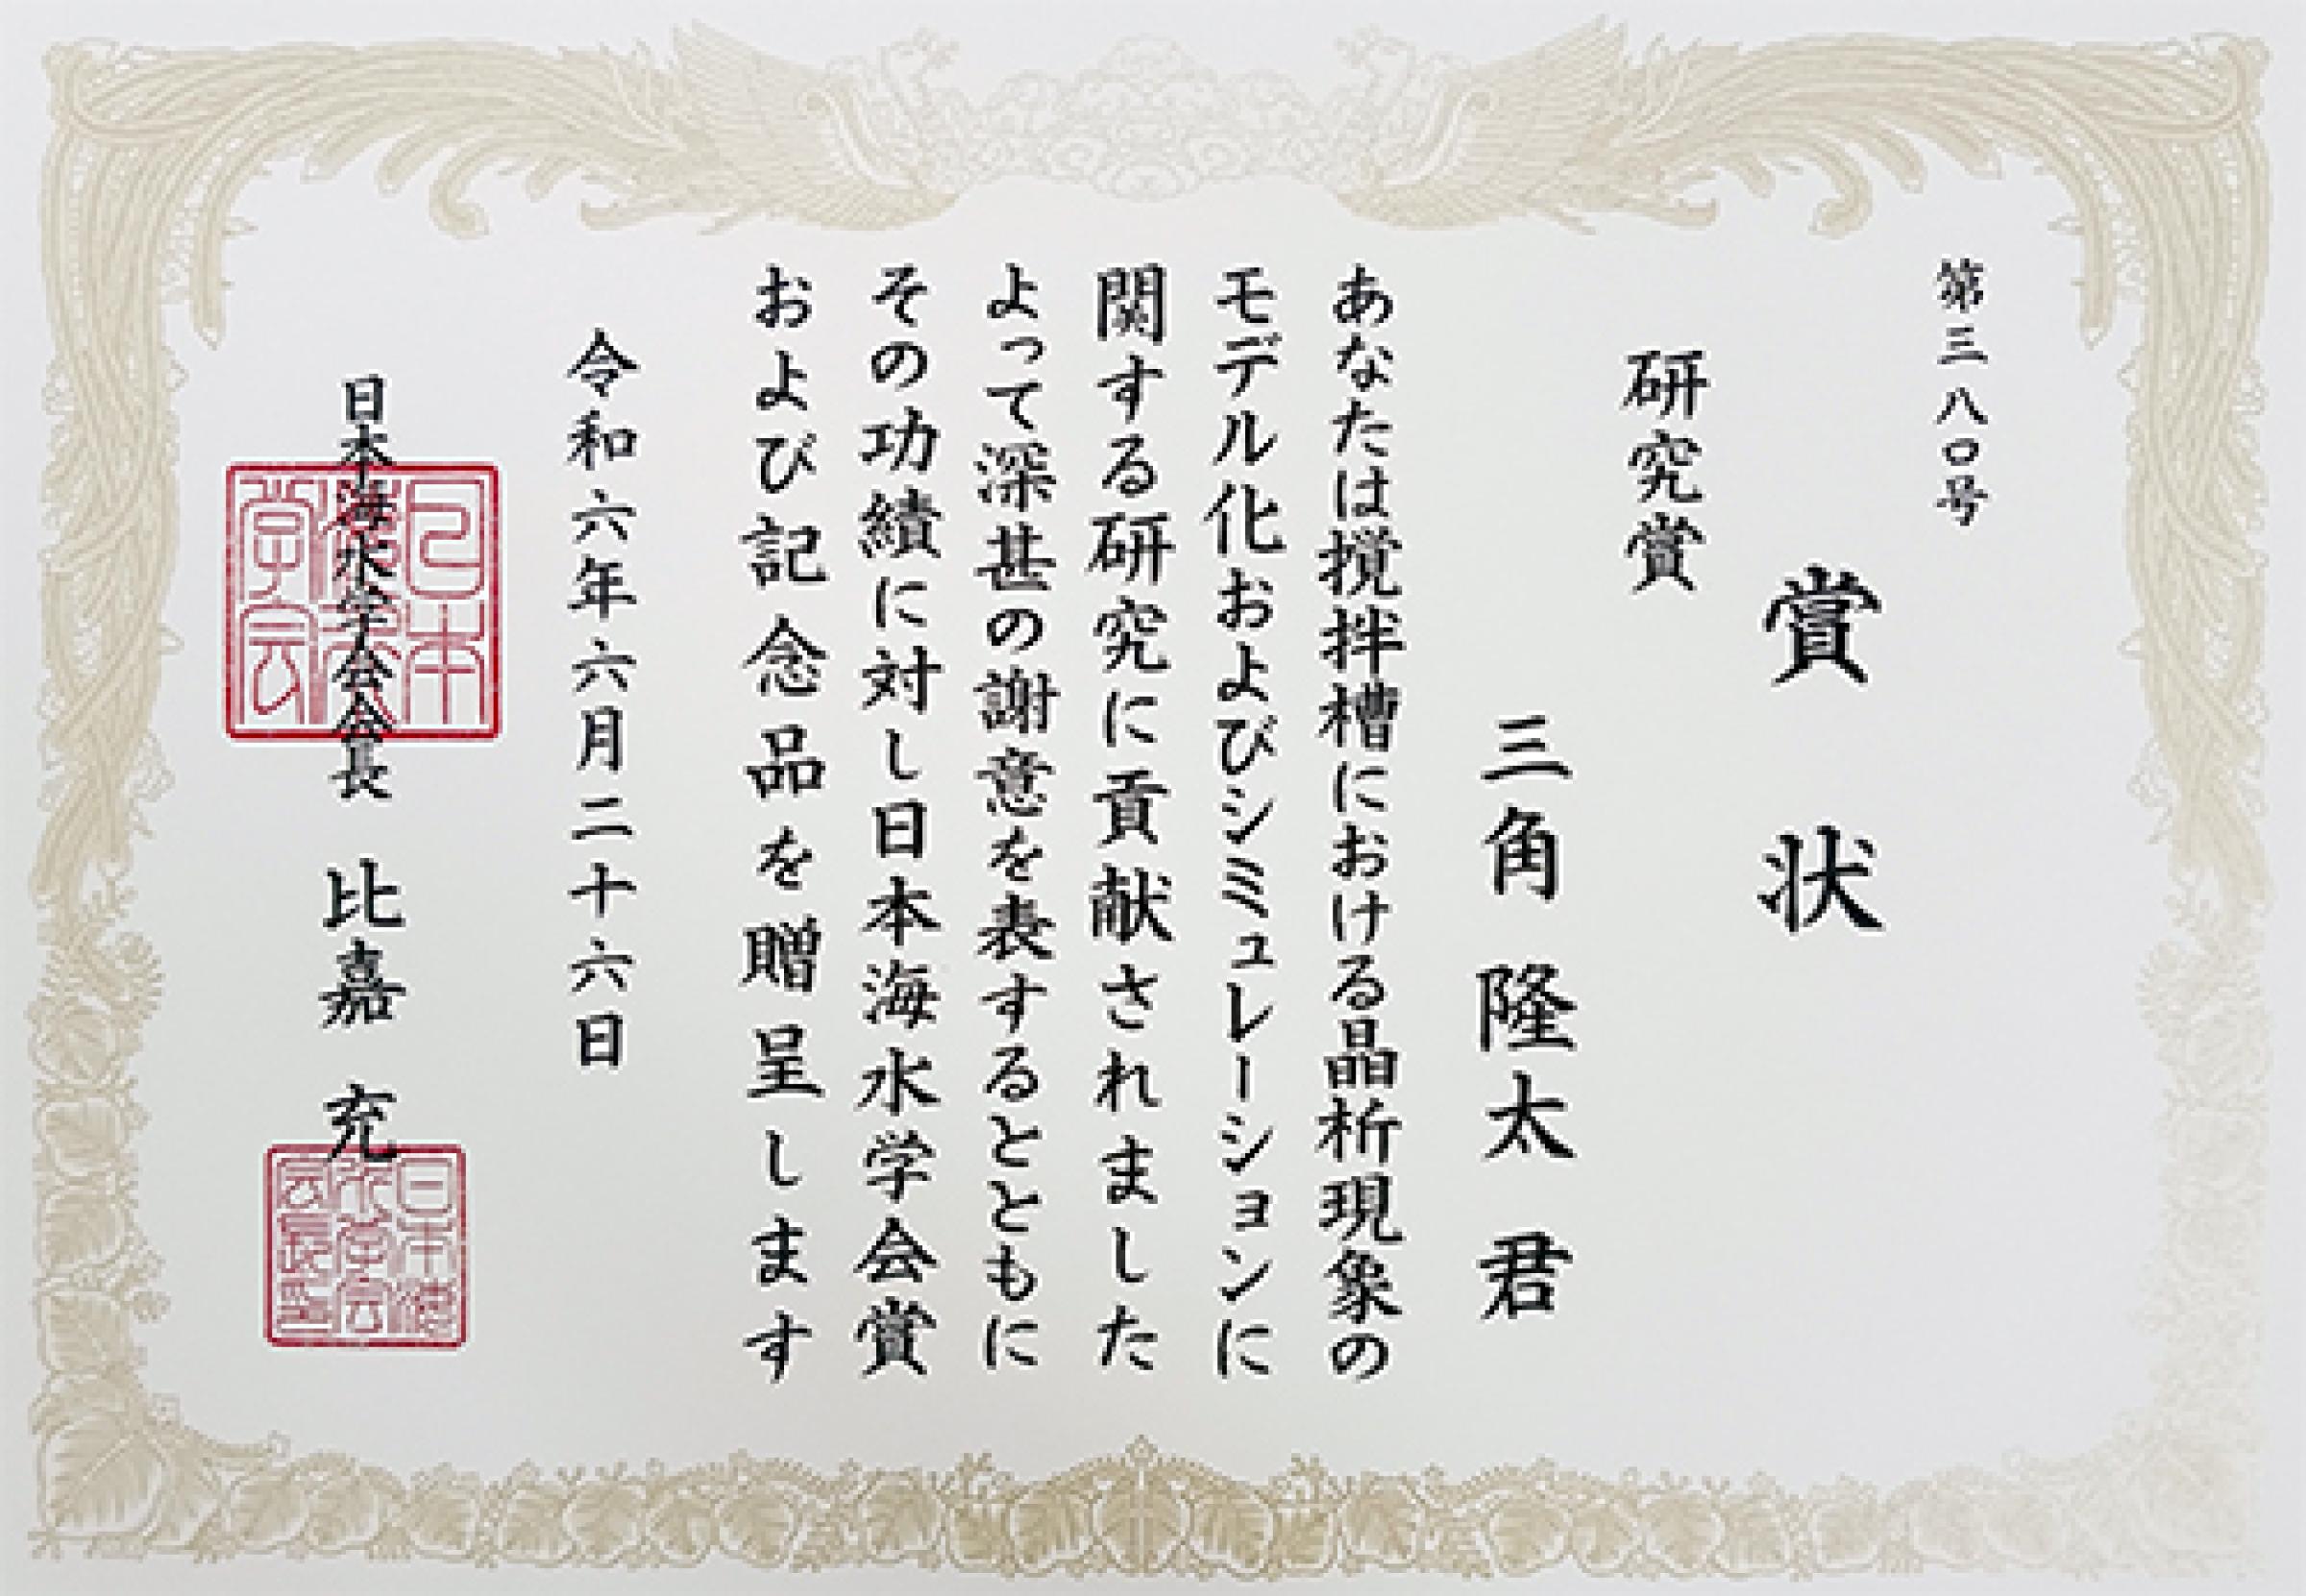 第三八〇号
賞状
研究賞
三角 隆太 君
あなたは撹拌槽における晶析現象の
モデル化およびシミュレーションに
関する研究に貢献されました
よって深甚の謝意を表するとともに
その功績に対し日本海水学会賞
および記念品を贈呈します
令和六年六月二十六日
日本海水学会会長 比嘉 充
日本海水学会
日本海水学会会長印